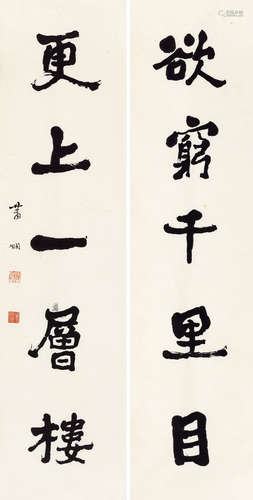 欲窮千里目
更上一層樓
萧娴